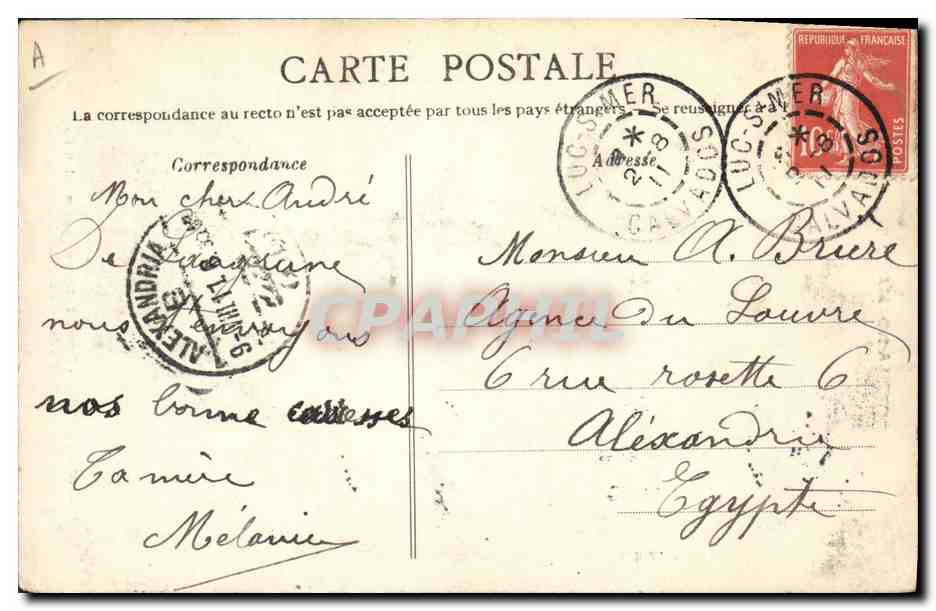 A
CARTE POSTALE
La correspondance au recto n'est pas acceptée par tous les pays étrangers. Se renseigner à
Correspondance
Adresse
REPUBLIQUE FRANÇAISE
10c
POSTES
LUC-S-MER
2 * 8
11
CALVADOS
LUC-S-MER
* 8
11
CALVADOS
Mon cher André
De Langrune
nous t'envoyons
nos bonne caresses
Ta mère
Mélanie
ALEXANDRIA
Monsieur A. Briere
Agence du Louvre
6 rue rosette 6
Aléxandrie
Egypte
CPAPHIL.COM